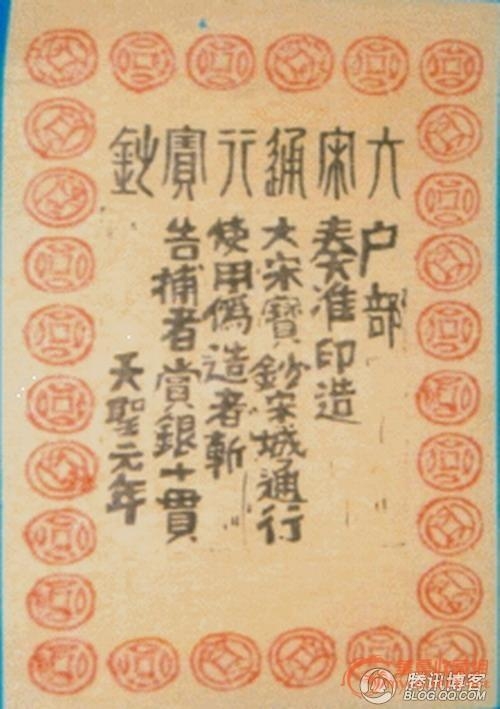 大宋通行寶鈔
户部
奏准印造
大宋寶鈔宋城通行
使用偽造者斬
告捕者賞銀十貫
天聖元年
腾讯博客
BLOG.QQ.COM